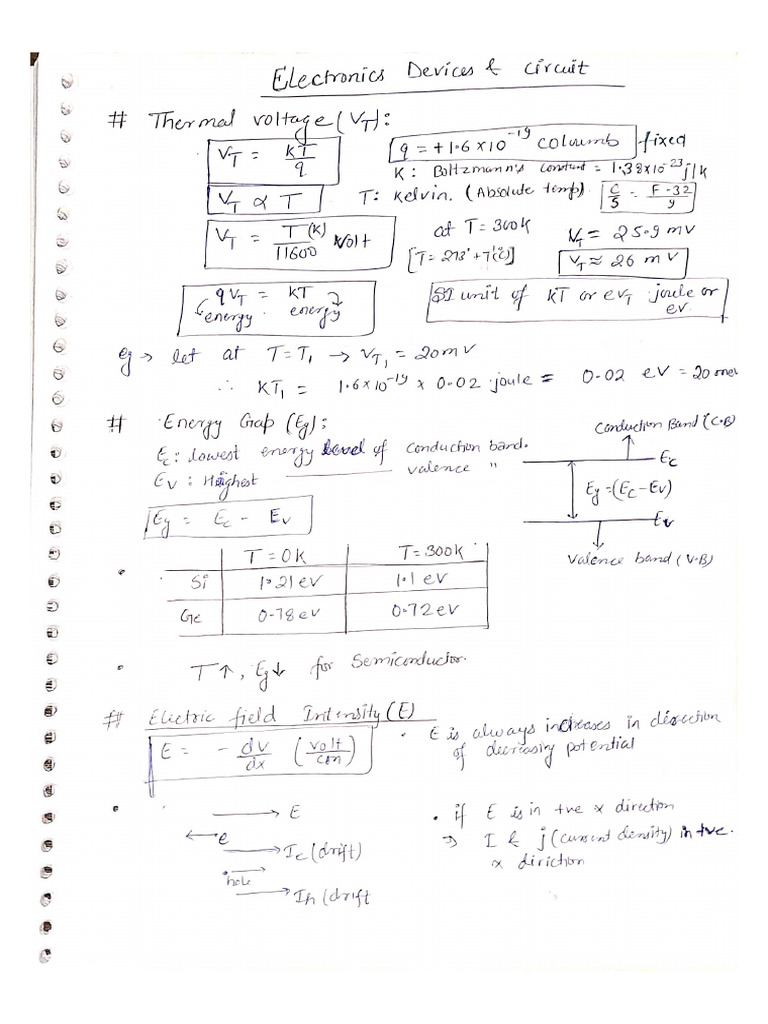 Electronics Devices & Circuit
# Thermal voltage (VT):
VT = KT/q
q = +1.6 x 10^-19 Coloumb fixed
K: Boltzmann's constant = 1.38x10^-23 j/k
VT ∝ T
T: Kelvin. (Absolute temp)
C/5 = F-32/9
VT = T(K)/11600 Volt
at T = 300K
VT = 25.9 mV
[T = 273° + T(°C)]
VT ≈ 26 mV
qVT = KT
energy energy
SI unit of KT or eVT joule or
eV.
eg → let at T = T1 → VT1 = 20mV
∴ KT1 = 1.6x10^-19 x 0.02 joule = 0.02 eV = 20 mev
# Energy Gap (Eg):
Ec: lowest energy level of conduction band.
Ev: Highest ——— valence "
Eg = Ec - Ev
Conduction Band (C.B)
Ec
Eg = (Ec - Ev)
Ev
Valence band (V.B)
T = 0K T = 300k
Si 1.21 eV 1.1 eV
Ge 0.78 eV 0.72 eV
• T↑, Eg↓ for Semiconductor.
# Electric field Intensity (E)
E = - dV/dx (volt/cm)
• E is always increases in direction
of decreasing potential
• → E
← e
→ Ic (drift)
hole
→ Ih (drift
• if E is in +ve x direction
⇒ I & j (current density) in +ve.
x diriction